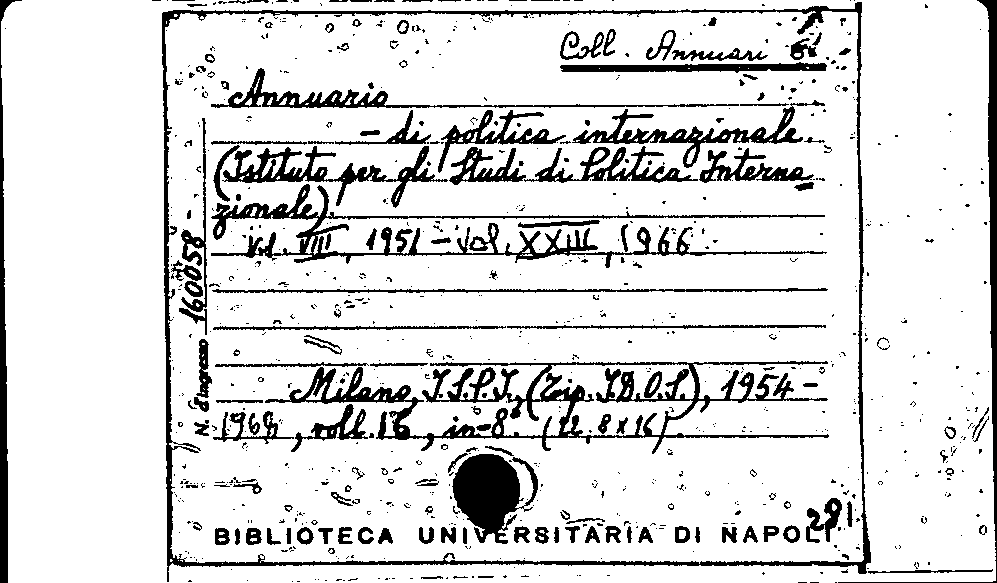 Coll. Annuari 6
Annuario
- di politica internazionale.
(Istituto per gli Studi di Politica Interna
zionale).
Vol. VIII, 1951 - Vol. XXIII, 1966
Milano, I.S.P.I., (Tip. I.D.O.S.), 1954 -
1968, voll. 16, in-8° (22,8x16).
N. d'ingresso 160058
BIBLIOTECA UNIVERSITARIA DI NAPOLI
291